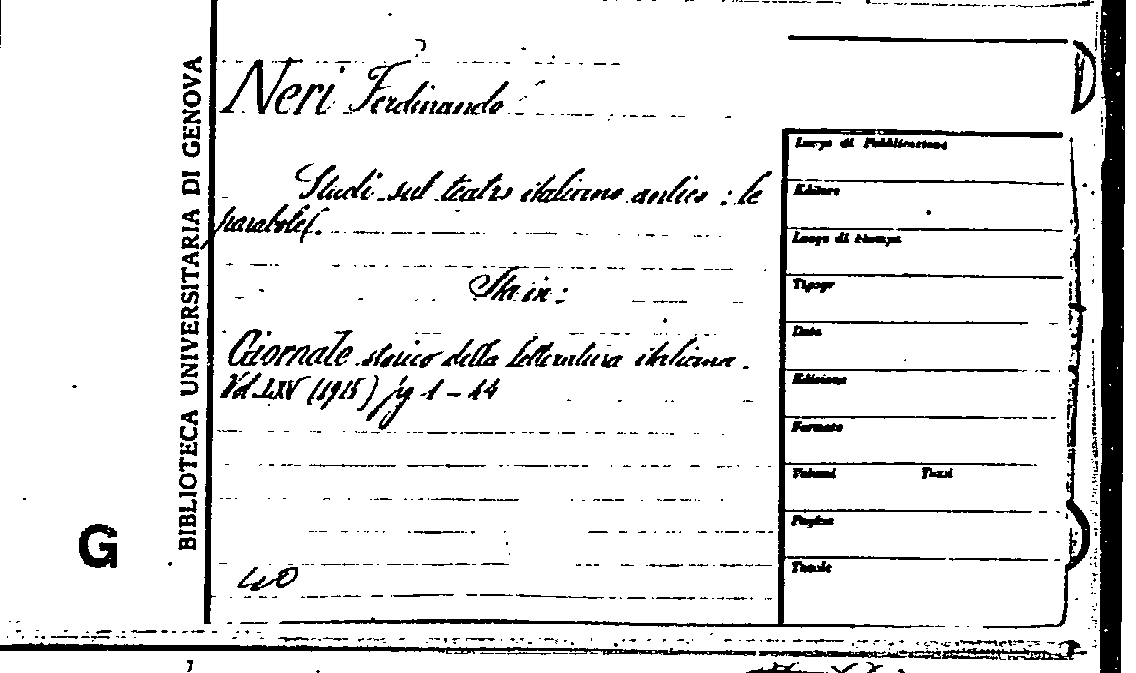 Neri Ferdinando
Studi sul teatro italiano antico : le
parabole.
Sta in:
Giornale storico della letteratura italiana.
Vol. LXV (1915) pg 1 - 44
40
BIBLIOTECA UNIVERSITARIA DI GENOVA
G
Luogo di Pubblicazione
Editore
Luogo di stampa
Tipogr
Data
Edizione
Formato
Volumi Tomi
Pagine
Tavole